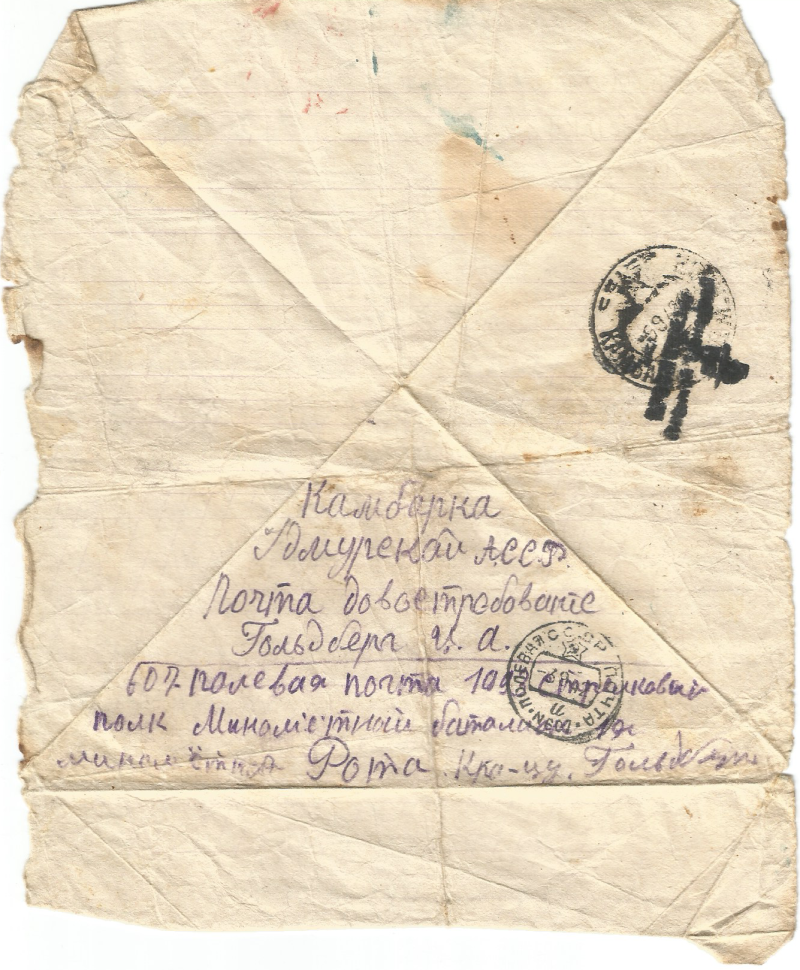 Камбарка
Удмурской АССР.
Почта довостребование
Гольдберг И. А.
607 полевая почта стрелковый
полк Минометный баталион 1я
минометная Рота Кра-цу. Гольдберг
СССР
ПОЛЕВАЯ ПОЧТА